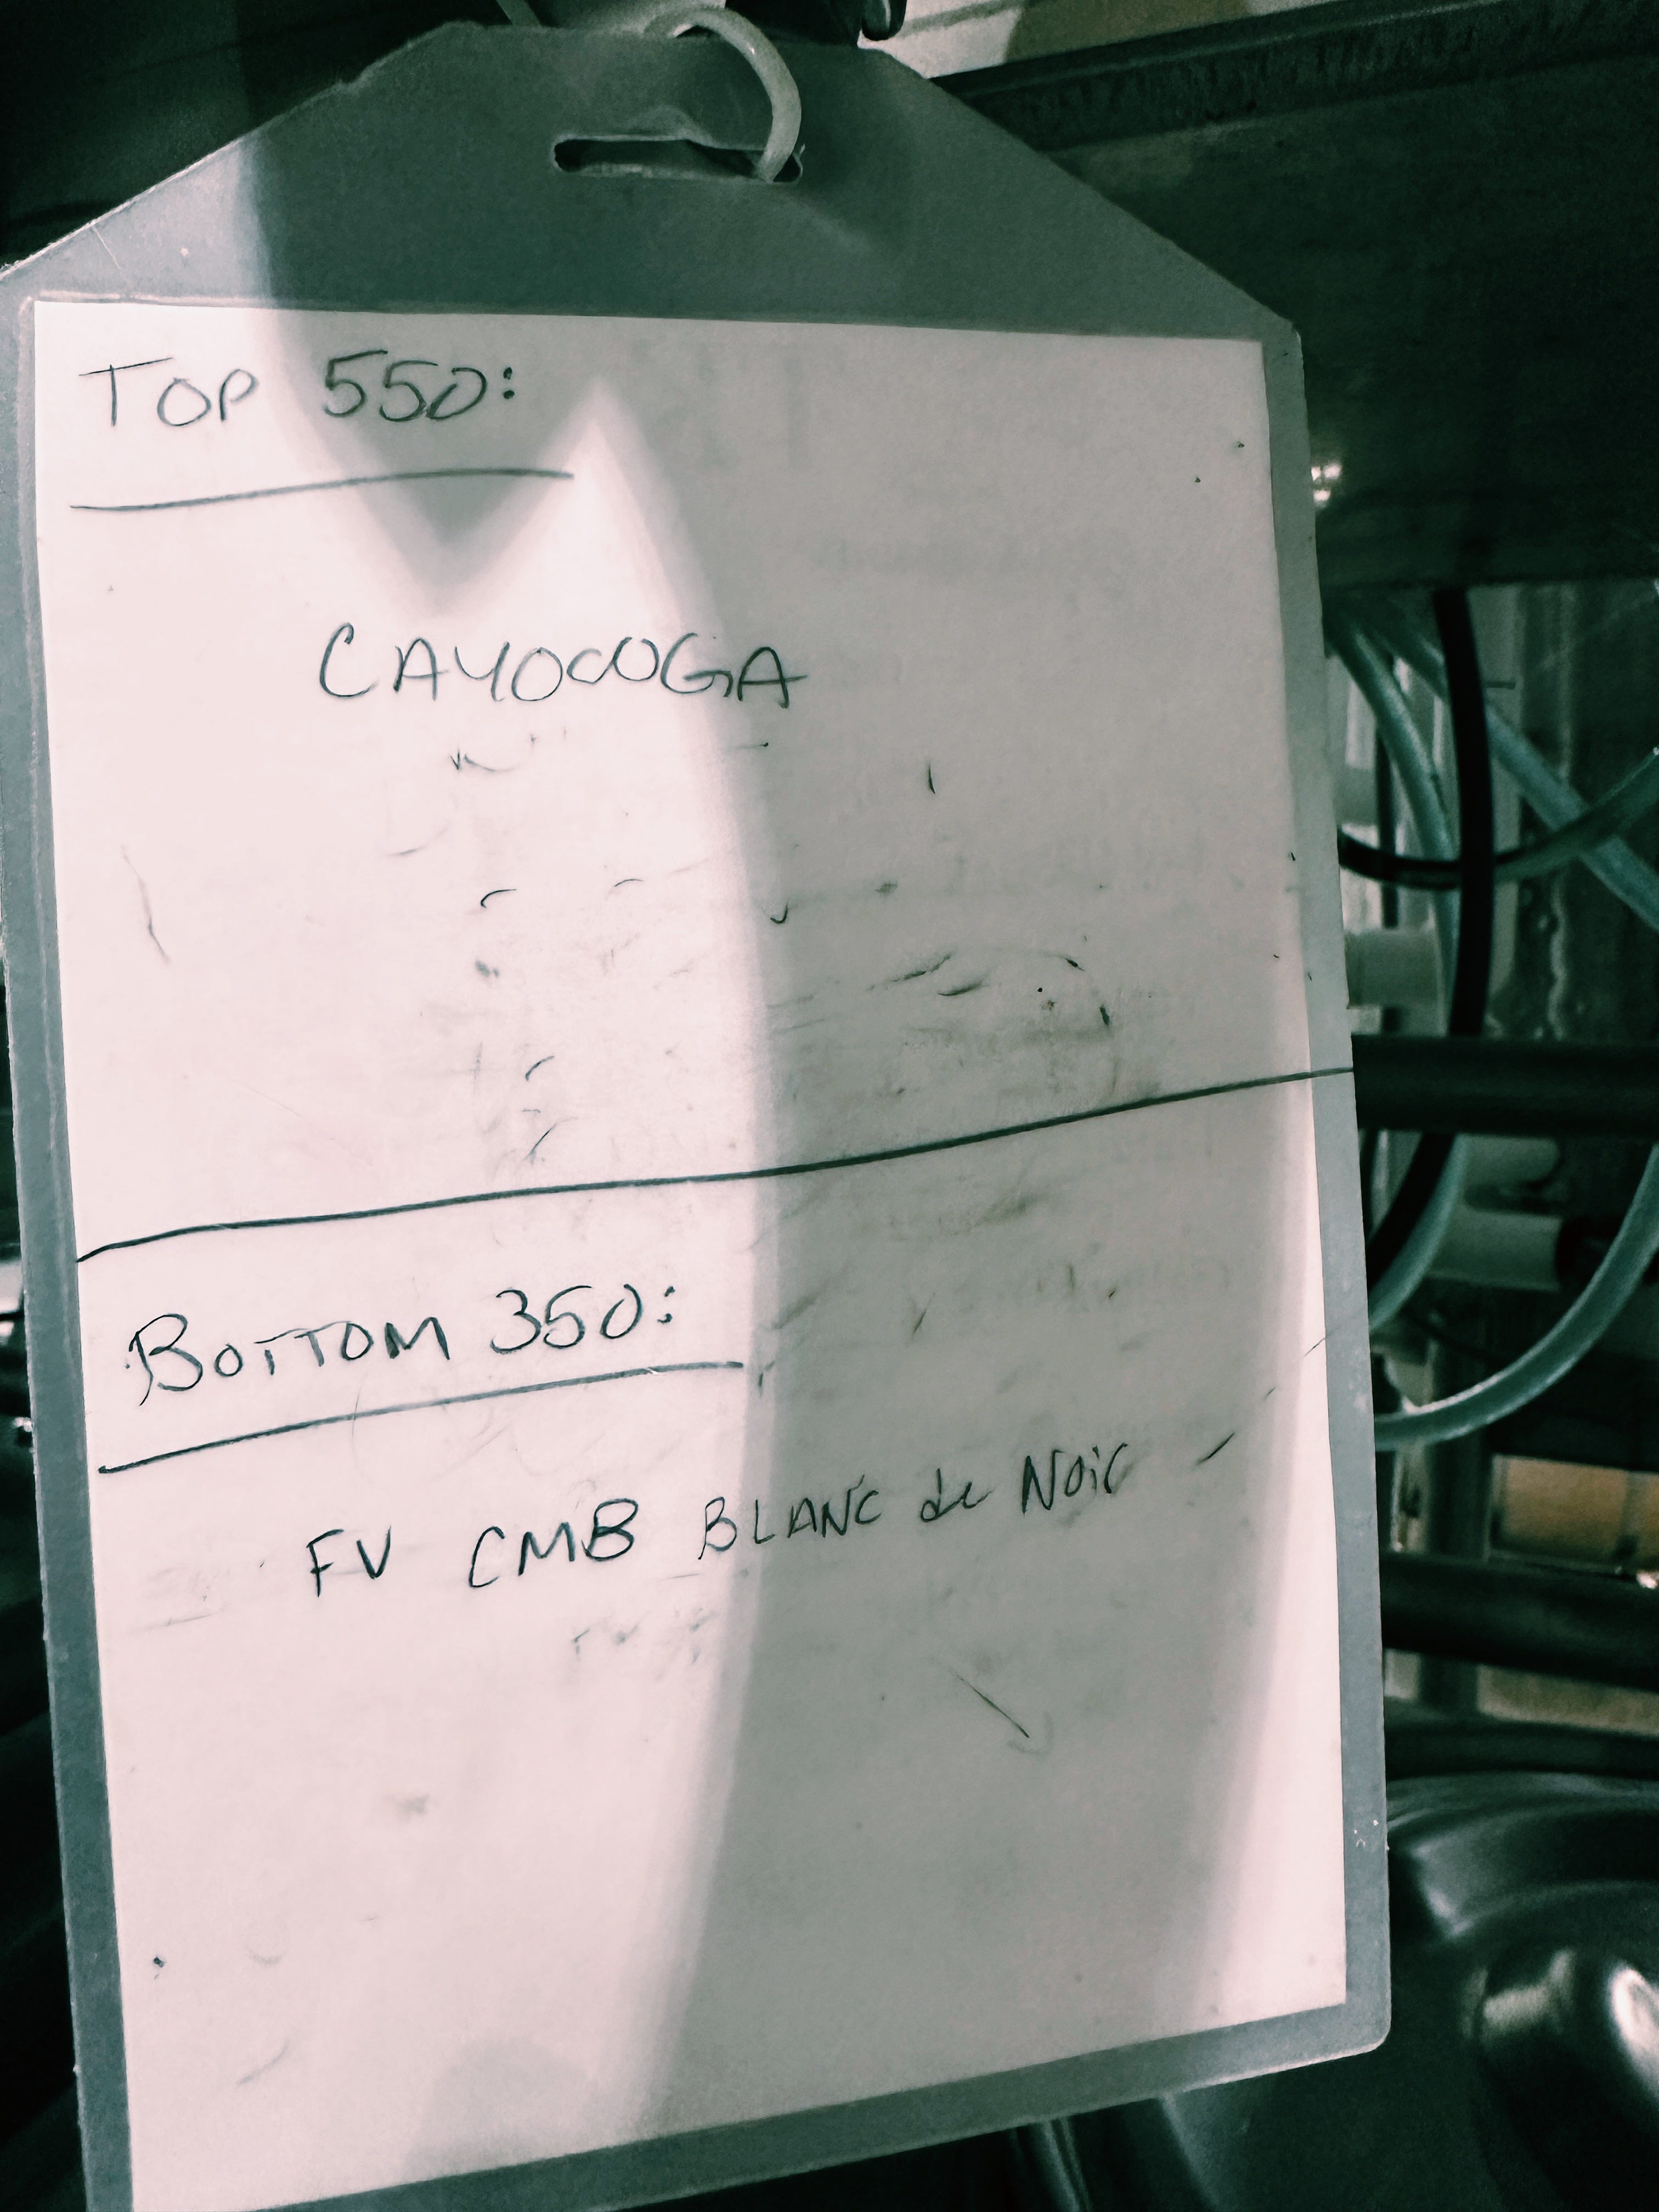 TOP 550:
CAYOCUGA
BOTTOM 350:
FV CMB BLANC de NOIR